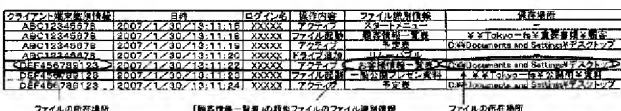 クライアント端末識別情報 日時 ログイン名 操作内容 ファイル識別情報 保存場所
ABC12345678 2007/1/30/13:11:15 XXXXX アクティブ スタートメニュー
ABC12345678 2007/1/30/13:11:18 XXXXX ファイル起動 顧客情報一覧表 ¥¥Tokyo-fs¥重要書類¥顧客
ABC12345678 2007/1/30/13:11:19 XXXXX アクティブ 予定表 D:¥Documents and Settings¥デスクトップ
ABC12345678 2007/1/30/13:11:20 XXXXX ドライブ追加 リムーバブル
DEF456789123 2007/1/30/13:11:22 XXXXX アクティブ お客様情報一覧表 D:¥Documents and Settings¥デスクトップ
DEF456789123 2007/1/30/13:11:23 XXXXX ファイル起動 一般公開プレゼン資料 ¥¥Tokyo-fs¥公開用¥資料
DEF456789123 2007/1/30/13:11:24 XXXXX アクティブ 予定表 D:¥Documents and Settings¥デスクトップ
ファイルの所在場所 「顧客情報一覧表」の類似ファイルのファイル識別情報 ファイルの所在場所